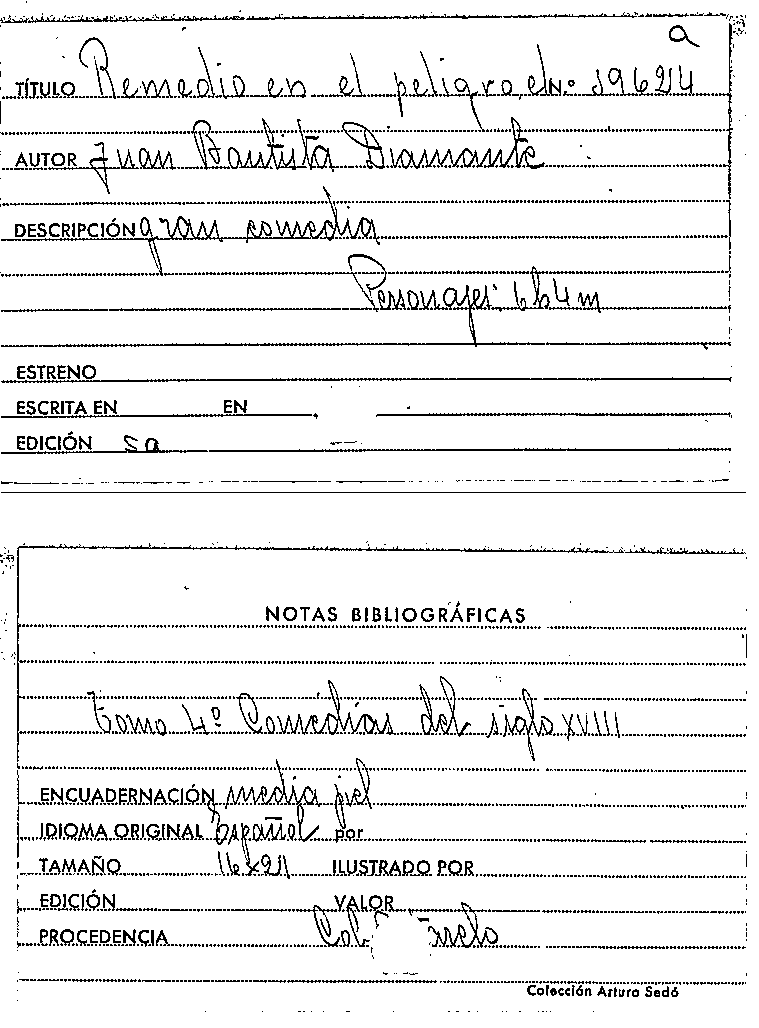 a
TÍTULO Remedio en el peligro, el Nº 59624
AUTOR Juan Bautista Diamante
DESCRIPCIÓN gran comedia
Personajes: 6h 4m
ESTRENO
ESCRITA EN EN
EDICIÓN sa
NOTAS BIBLIOGRÁFICAS
tomo 4º Comedias del siglo XVIII
ENCUADERNACIÓN media piel
IDIOMA ORIGINAL Español por
TAMAÑO 16x21 ILUSTRADO POR
EDICIÓN VALOR
PROCEDENCIA
Colección Arturo Sedó